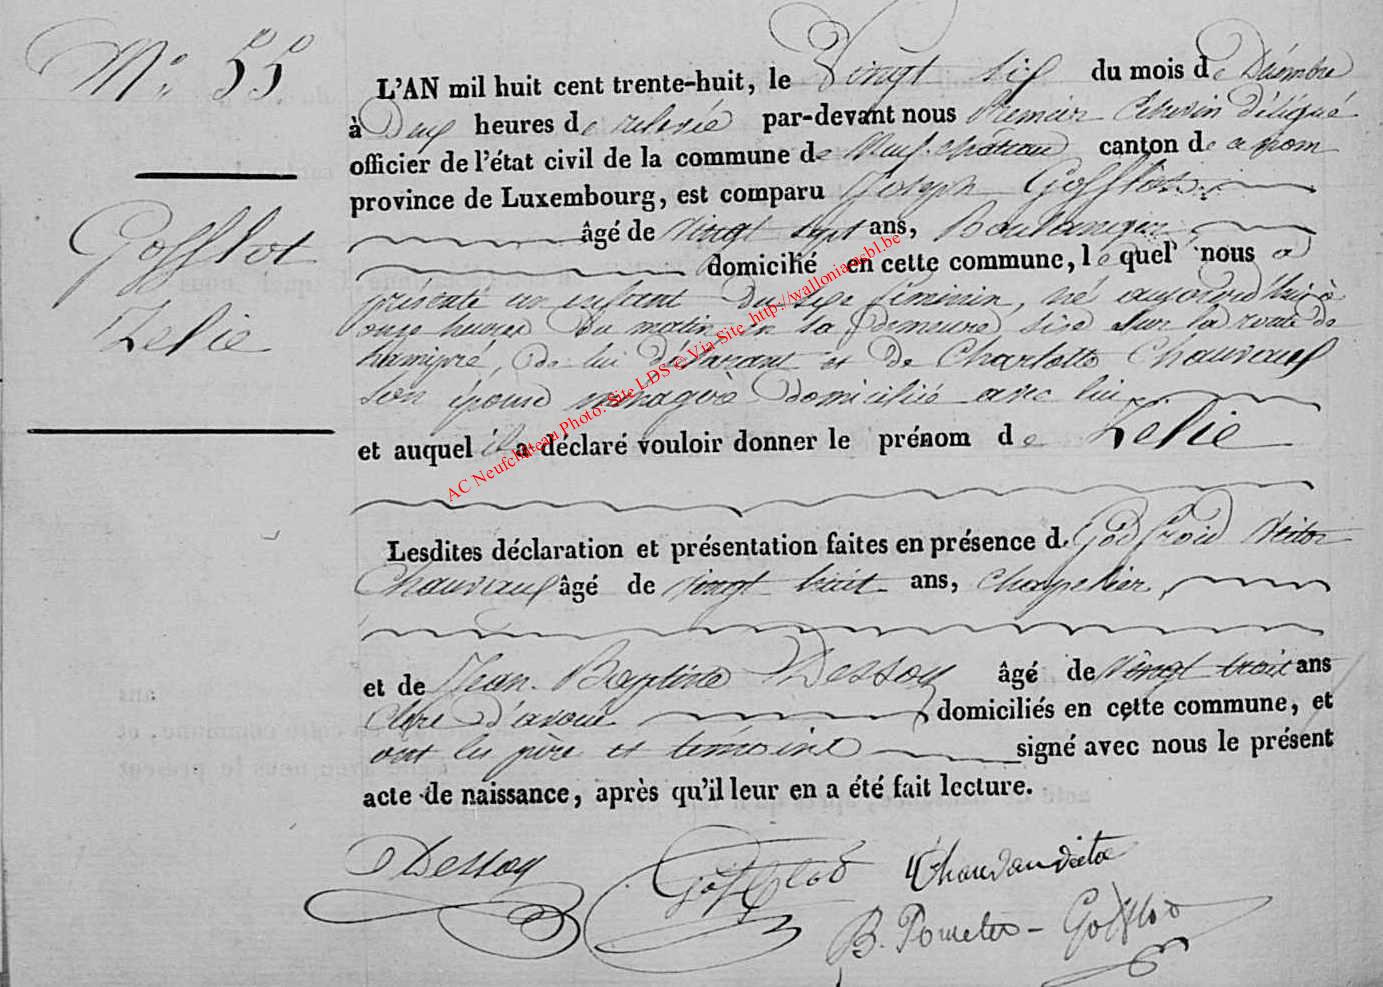 N° 55
Gofflot
Zelie
L'AN mil huit cent trente-huit, le Vingt six du mois de Décembre
à Deux heures de relevée par-devant nous Premier Echevin délégué
officier de l'état civil de la commune de Neufchateau canton de ce nom
province de Luxembourg, est comparu Joseph Gofflot
âgé de vingt sept ans, Boulanger
domicilié en cette commune, lequel nous a
présenté un enfant du sexe féminin, né aujourd'hui à
onze heures du matin en la demeure sise sur la route de
hamipré, de lui déclarant et de Charlotte Chauveaux
son épouse ménagère domicilié avec lui
et auquel il a déclaré vouloir donner le prénom de Zelie
Lesdites déclaration et présentation faites en présence de Godfroid Victor
Chauveaux âgé de vingt huit ans, Chapelier
et de Jean Baptiste Dessoy âgé de vingt trois ans
Clerc d'avoué domiciliés en cette commune, et
ont les père et témoins signé avec nous le présent
acte de naissance, après qu'il leur en a été fait lecture.
Dessoy Gofflot
B. Gofflot
AC Neufchateau Photo: Site LDS © Via Site http://wallonia-asbl.be